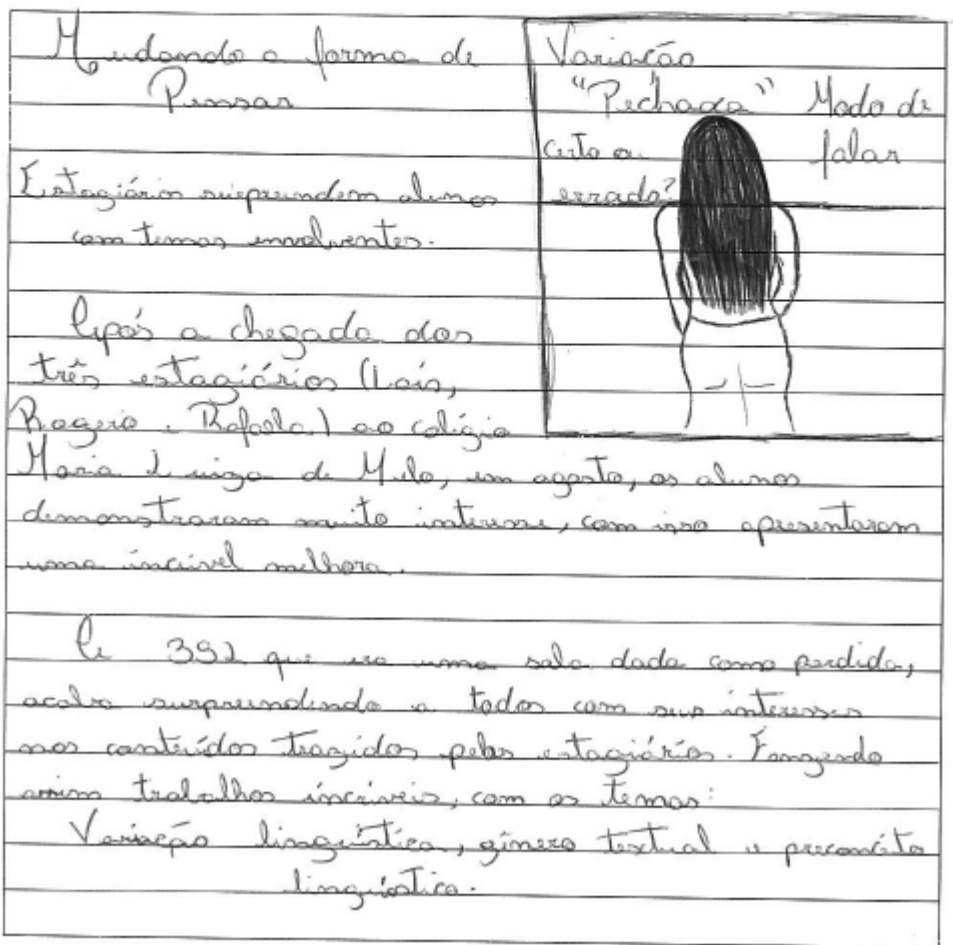 Mudando a forma de
Pensar
Estagiários surpreendem alunos
com temas envolventes.
Variação
"Pechada" Modo de
certo ou falar
errado?
Após a chegada dos
três estagiários (Laís,
Rogerio e Rafaela) ao colégio
Maria Luiza de Melo, em agosto, os alunos
demonstraram muito interesse, com isso apresentaram
uma incrível melhora.
A 392 que era uma sala dada como perdida,
acaba surpreendendo a todos com seus interesses
nos conteúdos trazidos pelos estagiários. Fanzendo
assim trabalhos incríveis, com os temas:
Variação linguística, gênero textual e preconceito
linguístico.